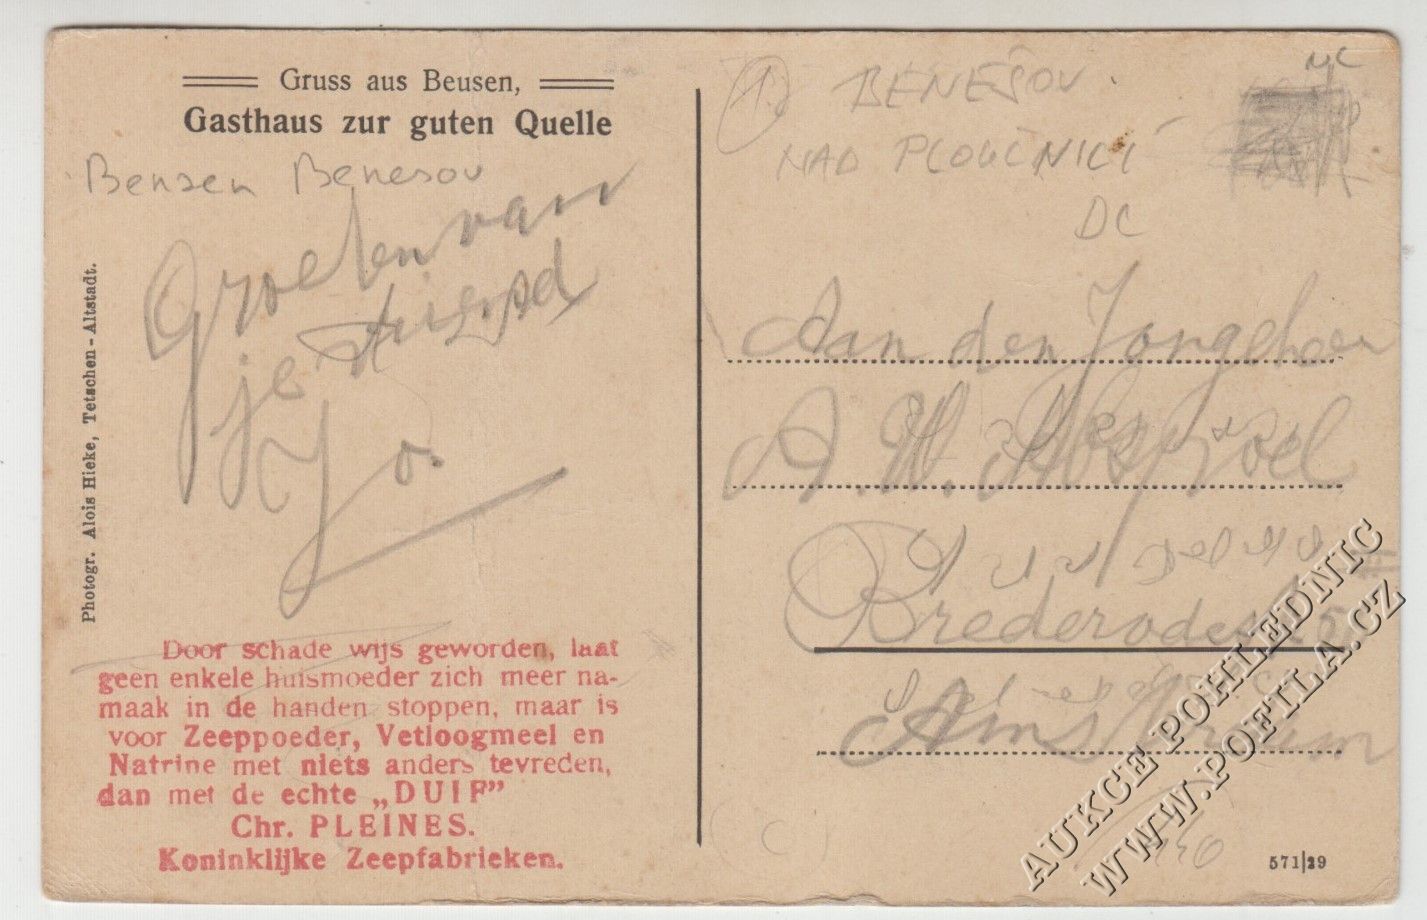 Gruss aus Beusen,
Gasthaus zur guten Quelle
Bensen Benesov
Groeten van
je vriend
Jo.
Photogr. Alois Hieke, Tetschen-Altstadt.
Door schade wijs geworden, laat
geen enkele huismoeder zich meer na-
maak in de handen stoppen, maar is
voor Zeeppoeder, Vetloogmeel en
Natrine met niets anders tevreden,
dan met de echte „DUIF”
Chr. PLEINES.
Koninklijke Zeepfabrieken.
1.) BENEŠOV
NAD PLOUČNICÍ
DC
NC
Aan den Jongeheer
A. W.
Brederodestr
Amsterdam
(C)
571|29
AUKCE POHLEDNIC
WWW.POFILA.CZ